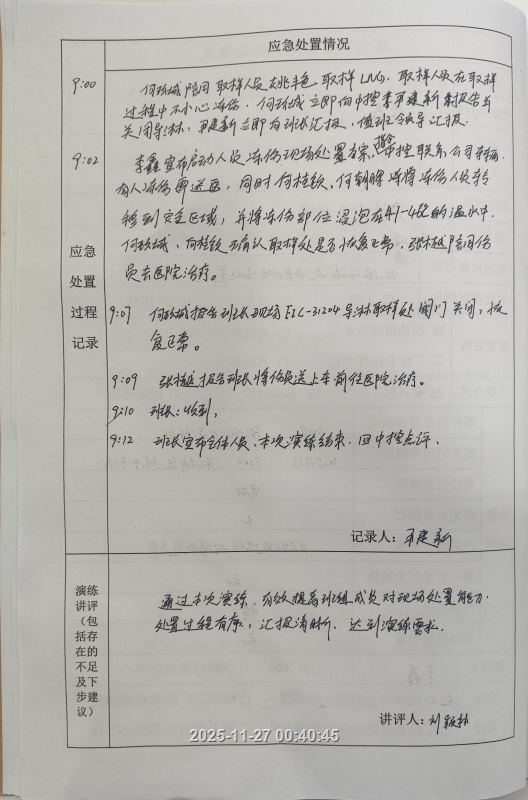 应急处置情况
应急
处置
过程
记录
9:00 何玖城陪同取样人员姚丰色取样LNG,取样人员在取样
过程中不小心冻伤,何玖城立即向中控李建新报告并
关闭导淋,建新立即向班长汇报,值班领导汇报。
9:02 李鑫宣布启动人员冻伤现场处置方案,指令中控联系公司车辆
有人冻伤需送医,同时何桂钦、何朝晖将冻伤人员转
移到安全区域,并将冻伤部位浸泡在41-48的温水中.
何玖城、何桂钦确认取样处是否恢复正常,张越陪同伤
员去医院治疗。
9:07 何玖城报告班长现场FIC-31204导淋取样处阀门关闭,恢
复正常。
9:09 张越报告班长将伤员送上车前往医院治疗。
9:10 班长:收到。
9:12 班长宣布全体人员,本次演练结束.回中控点评.
记录人:建新
演练
讲评
(包
括存
在的
不足
及下
步建
议)
通过本次演练,有效提高班组成员对现场处置能力.
处置过程有序,汇报清晰.达到演练要求.
讲评人:刘
2025-11-27 00:40:45